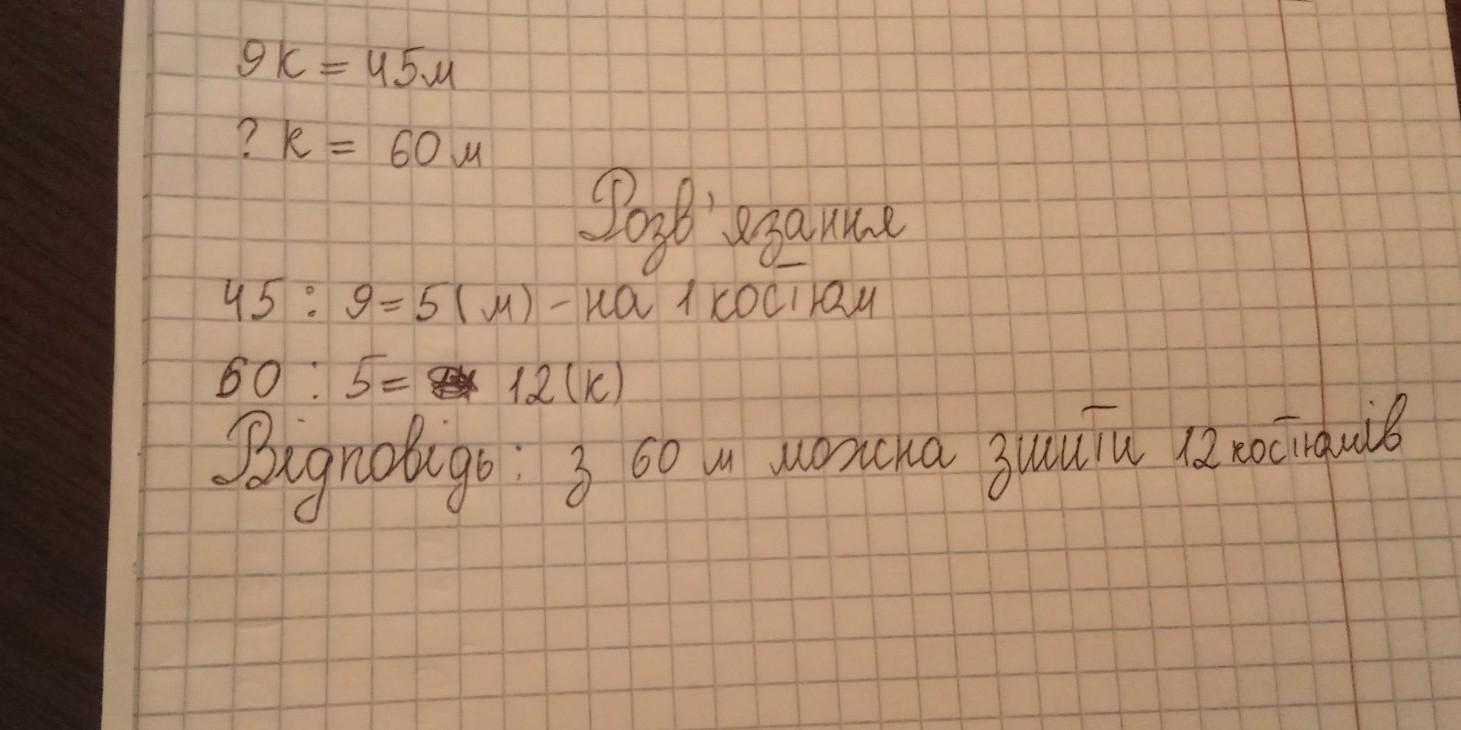 9к = 45м
? к = 60 м
Розв'язання
45 : 9 = 5 (м) - на 1 костюм
60 : 5 = 12 (к)
Відповідь: з 60 м можна зшити 12 костюмів